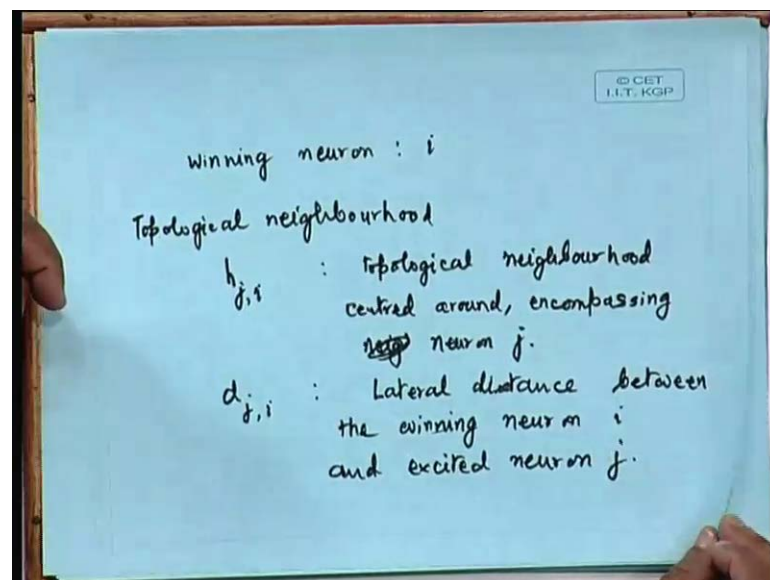 © CET
I.I.T. KGP
winning neuron : i
Topological neighbourhood
h j,i : Topological neighbourhood
centred around, encompassing
neuron j.
d j,i : Lateral distance between
the winning neuron i
and excited neuron j.